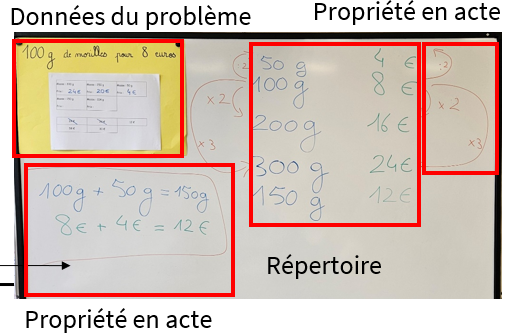 Données du problème
Propriété en acte
100 g de morilles pour 8 euros
24€ 20€ 4€
50 g 4 €
100 g 8 €
200 g 16 €
300 g 24€
150 g 12€
:2
x 2
x 3
:2
x 2
x3
100g + 50 g = 150g
8€ + 4€ = 12€
Répertoire
Propriété en acte